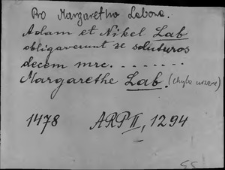 Pro Margaretha Labowa.
Adam et Nikel Lab
obligaverunt se soluturos
decem mrc. . . . . . . .
Margarethe Lab. (chyba uxori)
1478 ARP II, 1294